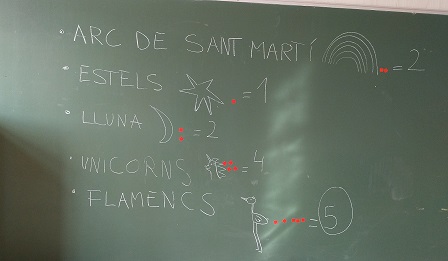 • ARC DE SANT MARTÍ = 2
• ESTELS = 1
• LLUNA = 2
• UNICORNS = 4
• FLAMENCS = 5